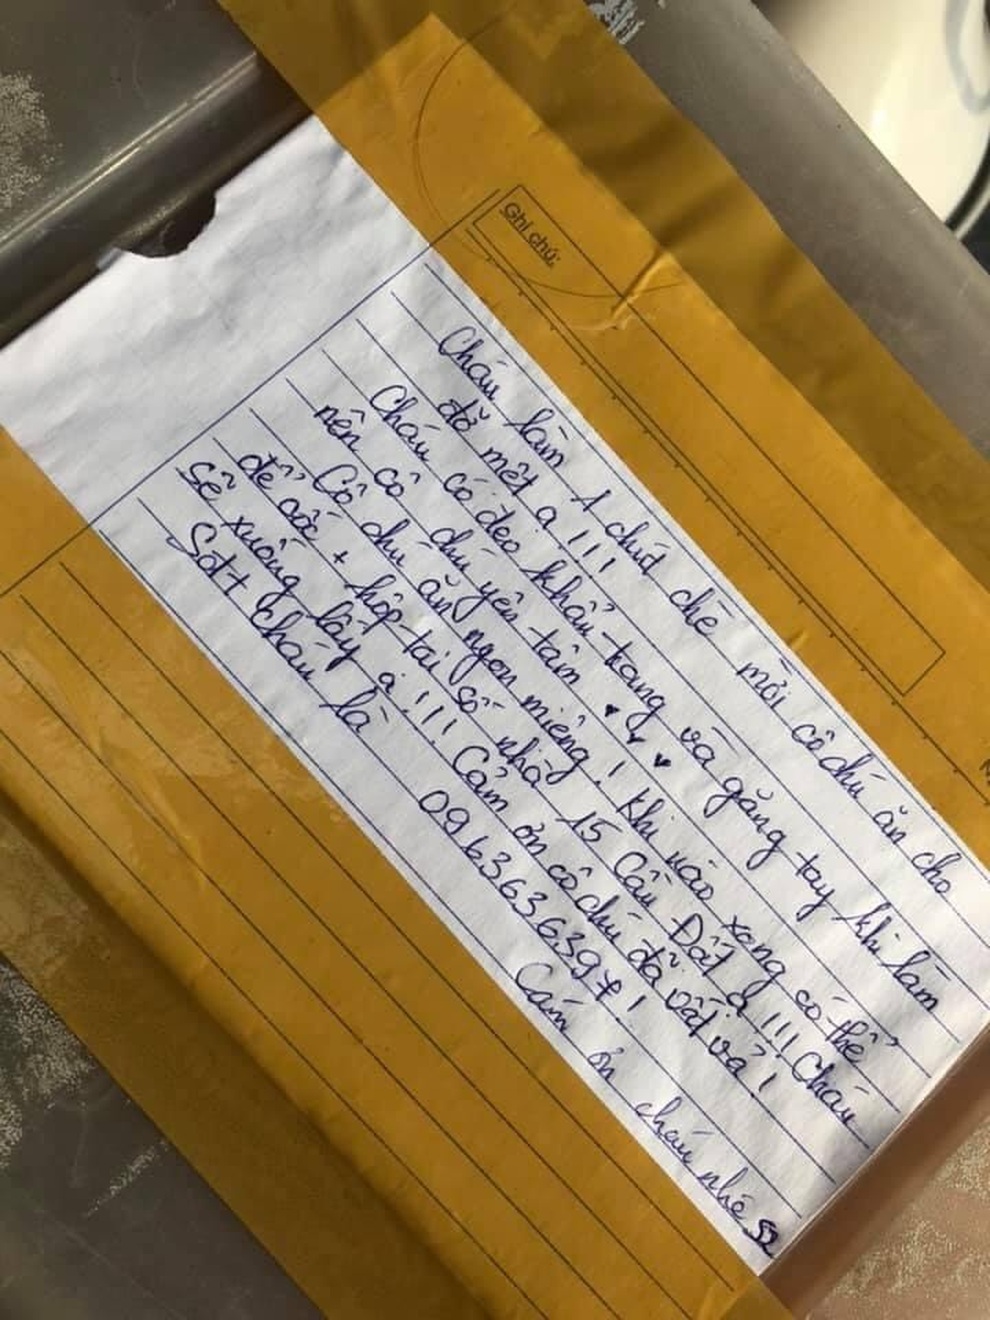 Ghi chú:
Cháu làm 1 chút chè mời cô chú ăn cho
đỡ mệt ạ!!!
Cháu có đeo khẩu trang và găng tay khi làm
nên cô chú yên tâm ♥ ♥ ♥
Cô chú ăn ngon miệng! Khi nào xong có thể
để cốc + hộp tại số nhà 15 Cầu Đất ạ!!! Cháu
sẽ xuống lấy ạ!!! Cảm ơn cô chú đã vất vả!
Sđt cháu là 0963636397!
Cám ơn cháu nhé